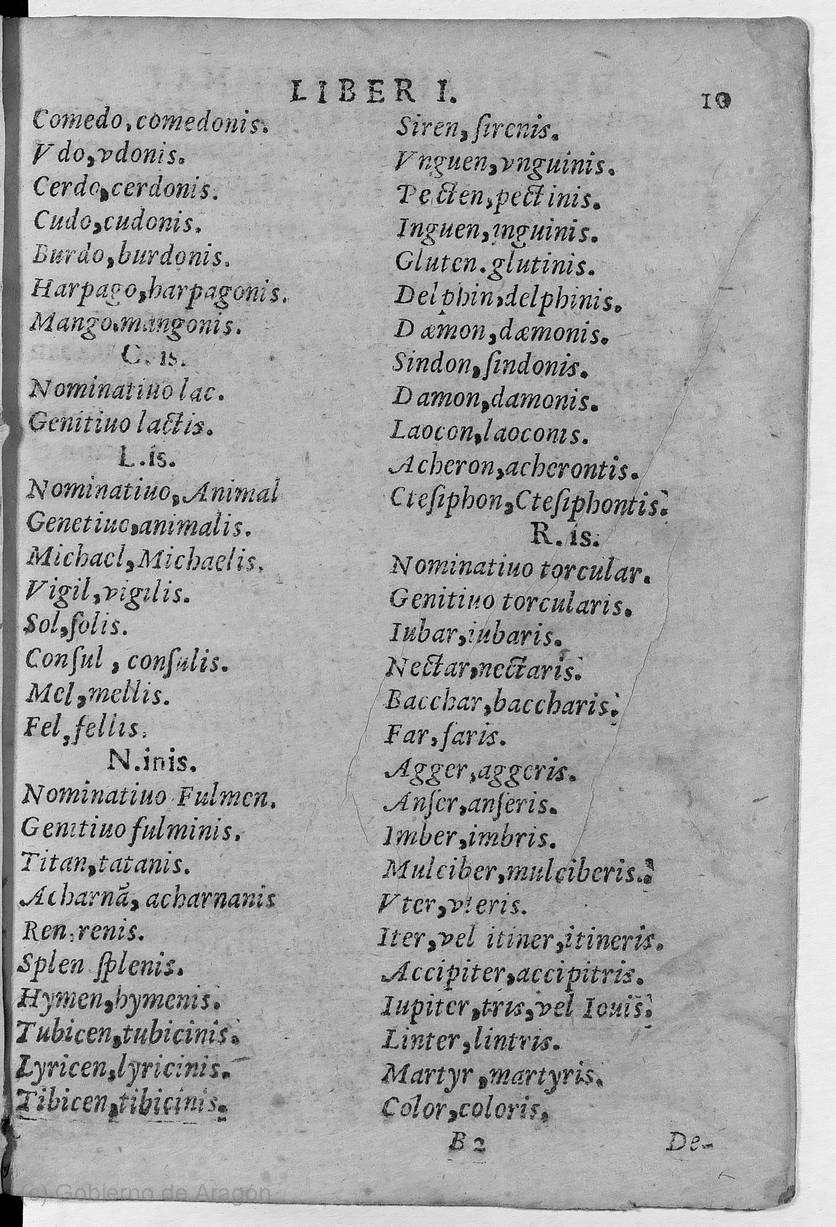 LIBER I.
10
Comedo, comedonis.
Vdo, vdonis.
Cerdo, cerdonis.
Cudo, cudonis.
Burdo, burdonis.
Harpago, harpagonis.
Mango. mangonis.
C. is.
Nominatiuo lac.
Genitiuo lactis.
L. is.
Nominatiuo, Animal
Genetiuo, animalis.
Michael, Michaelis.
Vigil, vigilis.
Sol, ſolis.
Conſul , conſulis.
Mel, mellis.
Fel, fellis.
N. inis.
Nominatiuo Fulmen.
Genitiuo fulminis.
Titan, tatanis.
Acharnã, acharnanis
Ren. renis.
Splen ſplenis.
Hymen, hymenis.
Tubicen, tubicinis.
Lyricen, lyricinis.
Tibicen, tibicinis.
Siren, ſirenis.
Vnguen, vnguinis.
Pecten, pectinis.
Inguen, inguinis.
Gluten. glutinis.
Delphin, delphinis.
Dæmon, dæmonis.
Sindon, ſindonis.
Damon, damonis.
Laocon, laoconis.
Acheron, acherontis.
Cteſiphon, Cteſiphontis.
R. is.
Nominatiuo torcular.
Genitiuo torcularis.
Iubar, iubaris.
Nectar, nectaris.
Bacchar, baccharis.
Far, faris.
Agger, aggeris.
Anſer, anſeris.
Imber, imbris.
Mulciber, mulciberis.
Vter, vteris.
Iter, vel itiner, itineris.
Accipiter, accipitris.
Iupiter, tris, vel Iouis.
Linter, lintris.
Martyr, martyris.
Color, coloris.
B 2
De-
(c) Gobierno de Aragón